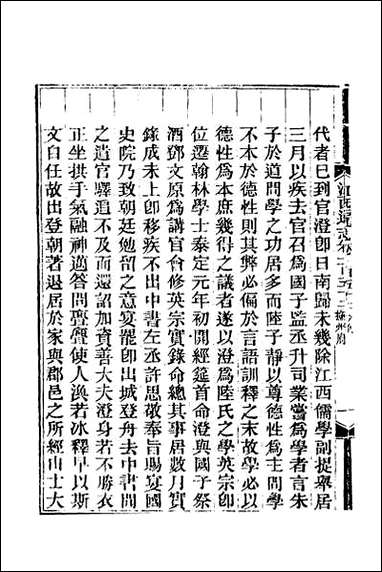 代者已到官澄卽日南歸未幾除江西儒學副提舉居
三月以疾去官召爲國子監丞升司業嘗爲學者言朱
子於道問學之功居多而陸子靜以尊德性爲主問學
不本於德性則其弊必偏於言語訓釋之末故學必以
德性爲本庶幾得之議者遂以澄爲陸氏之學英宗卽
位遷翰林學士泰定元年初開經筵首命澄與國子祭
酒鄧文原爲講官會修英宗實錄命總其事居數月實
錄成未上卽移疾不出中書左丞許思敬奉旨賜宴國
史院乃致朝廷勉留之意宴罷卽出城登舟去中書聞
之遣官驛追不及而還詔加資善大夫澄身若不勝衣
正坐拱手氣融神邁答問亹亹使人渙若冰釋早以斯
文自任故出登朝著退居於家與郡邑之所經由士大
江西通志卷一百五十二 撫州府
一